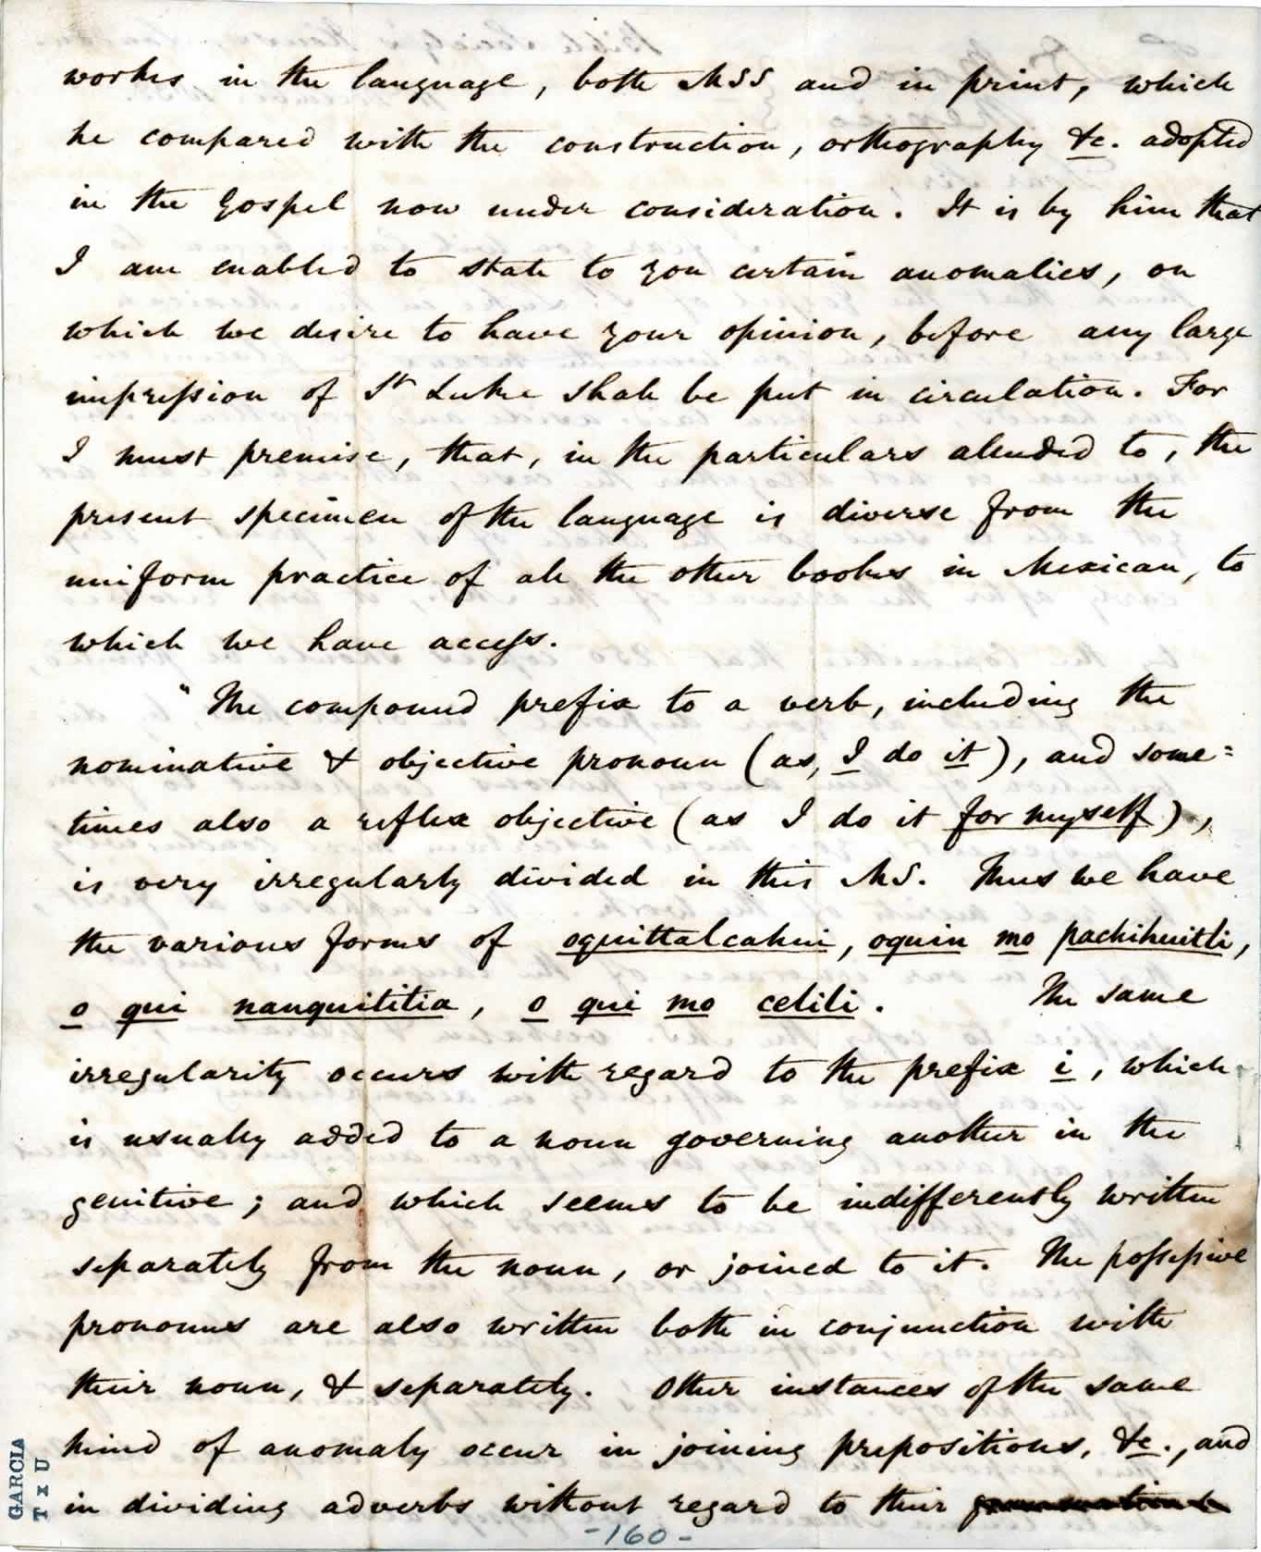 works in the language, both MSS and in print, which
he compared with the construction, orthography &c. adopted
in the Gospel now under consideration. It is by him that
I am enabled to state to you certain anomalies, on
which we desire to have your opinion, before any large
impression of St Luke shall be put in circulation. For
I must premise, that, in the particulars alluded to, the
present specimen of the language is diverse from the
uniform practice of all the other books in Mexican, to
which we have access.
"The compound prefix to a verb, including the
nominative & objective pronoun (as, I do it), and some=
times also a reflex objective (as I do it for myself),
is very irregularly divided in this MS. Thus we have
the various forms of oquittalcahui, oquin mo pachihuitli,
o qui nanquititia, o qui mo celili. The same
irregularity occurs with regard to the prefix i, which
is usually added to a noun governing another in the
genitive; and which seems to be indifferently written
separately from the noun, or joined to it. The possessive
pronouns are also written both in conjunction with
their noun, & separately. Other instances of the same
kind of anomaly occur in joining prepositions, &c., and
in dividing adverbs without regard to their
-160-
GARCIA
TxU